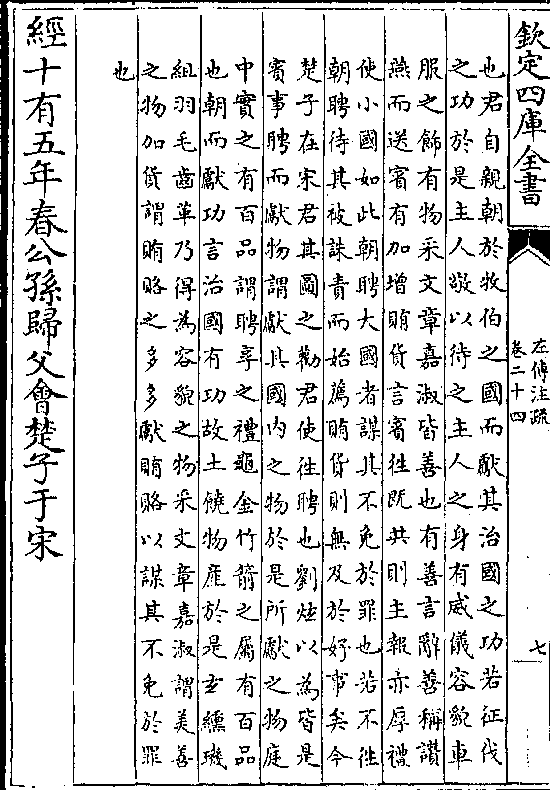 欽定四庫全書
左傳注疏
卷二十四
七
也君自親朝於牧伯之國而獻其治國之功若征伐
之功於是主人敬以待之主人之身有威儀容貌車
服之飾有物采文章嘉淑皆善也有善言辭善稱讚
燕而送賓有加增賄貨言賓徃既共則主報亦厚禮
使小國如此朝聘大國者謀其不免於罪也若不徃
朝聘待其被誅責而始薦賄貨則無及於好事矣今
楚子在宋君其圖之勸君使徃聘也劉炫以為皆是
賓事聘而獻物謂獻其國内之物於是所獻之物庭
中實之有百品謂聘享之禮龜金竹箭之屬有百品
也朝而獻功言治國有功故土饒物産於是玄纁璣
組羽毛齒革乃得為容貌之物采文章嘉淑謂美善
之物加貨謂賄賂之多多獻賄賂以謀其不免於罪
也
經十有五年春公孫歸父會楚子于宋